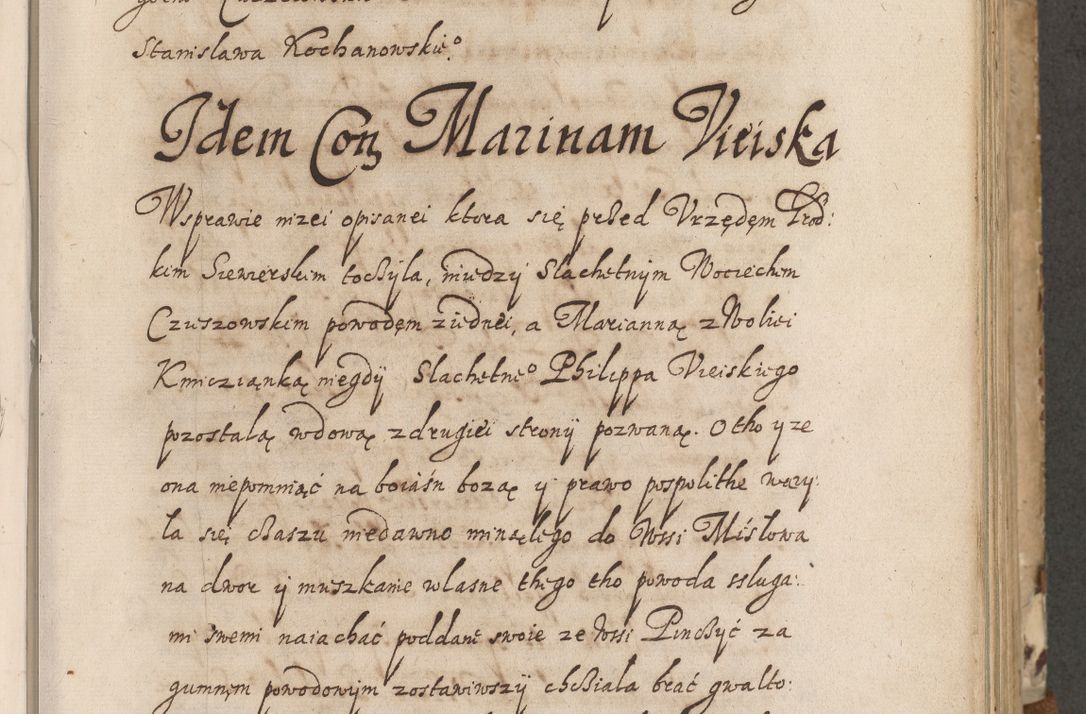 Stanisława Kochanowskie°
Idem Con Marinam Vieiska
Wsprawie nizei opisanei ktora się przed Vrzędęm Grod:
kim Siewierskim toczyła, między Slachetnÿm Woiciechem
Czuszowskim powodęm ziednei, a Marianną z Woliei
Kmiczianką niegdÿ Slachetne° Philippa Vieiskiego
pozostałą wdową z drugiei stronÿ pozwaną. O tho yze
ona niepomniąc na boiaśn bozą ÿ prawo pospolithe wazy:
la się czaszu niedawno minąlego do Wsi Misłowa
na dwor ÿ muszkanie wlasne thego tho powoda sluga:
mi swemi naiachać poddane swoie ze Wsi Pinczyć za
gumnęm powodowÿm zostawiwszÿ chcziala brać gwalto: